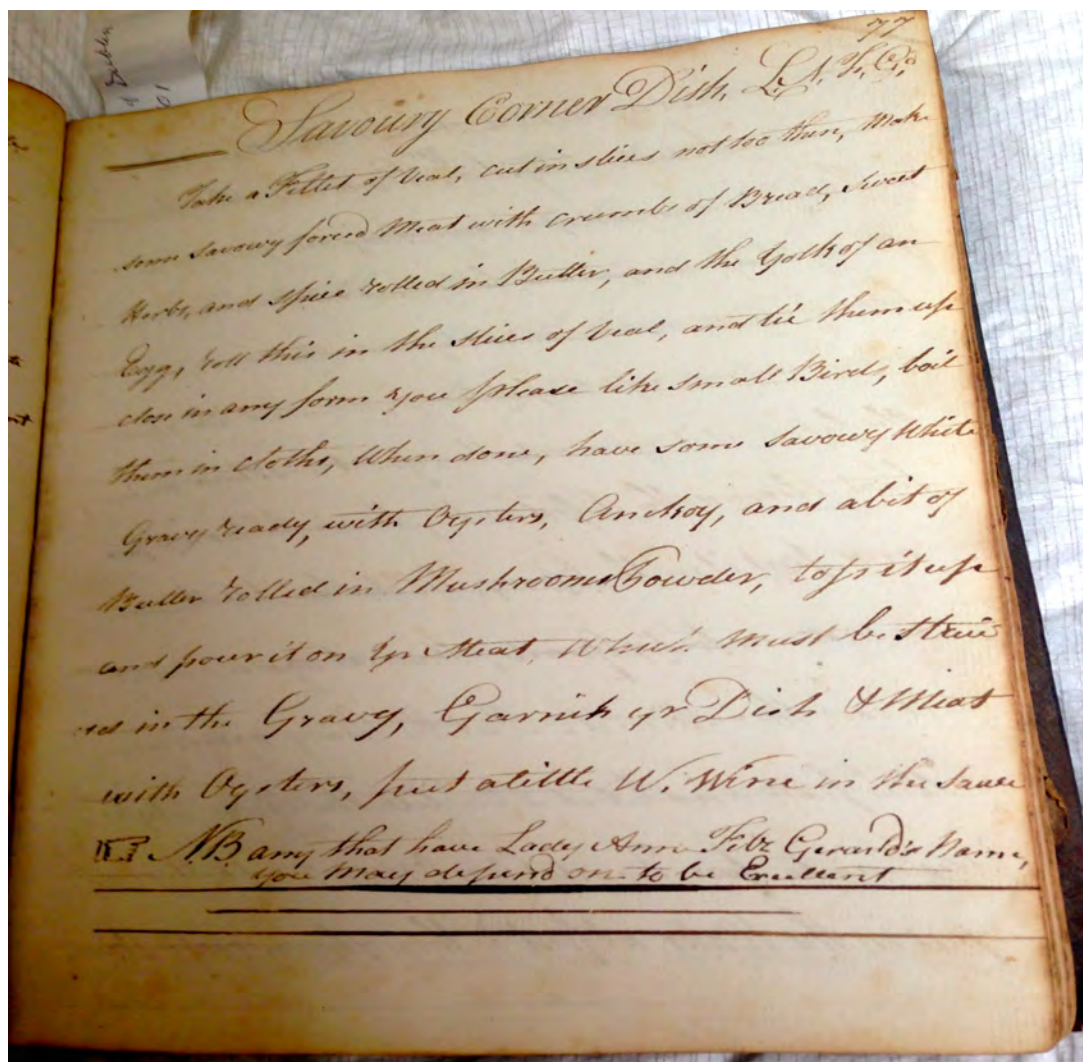 77
Savoury Corner Dish. L. A. F. G.d
Take a Fillet of Veal, cut in slices not too thin, Make
some savoury forced Meat with crumbs of Bread, Sweet
Herbs, and spice rolled in Butter, and the Yolk of an
Egg, roll this in the slices of Veal, and tie them up
close in any form you please like small Birds, boil
them in cloths, When done, have some Savoury White
Gravy ready, with Oysters, Anchoy, and a bit of
Butter rolled in Mushroom Powder, toss it up
and pour it on yr Meat, Which must be stew
ed in the Gravy, Garnish yr Dish & Meat
with Oysters, put a little W. Wine in the Sauce
☞ N.B. any that have Lady Ann Fitz Gerard's Name,
you May depend on to be Excellent